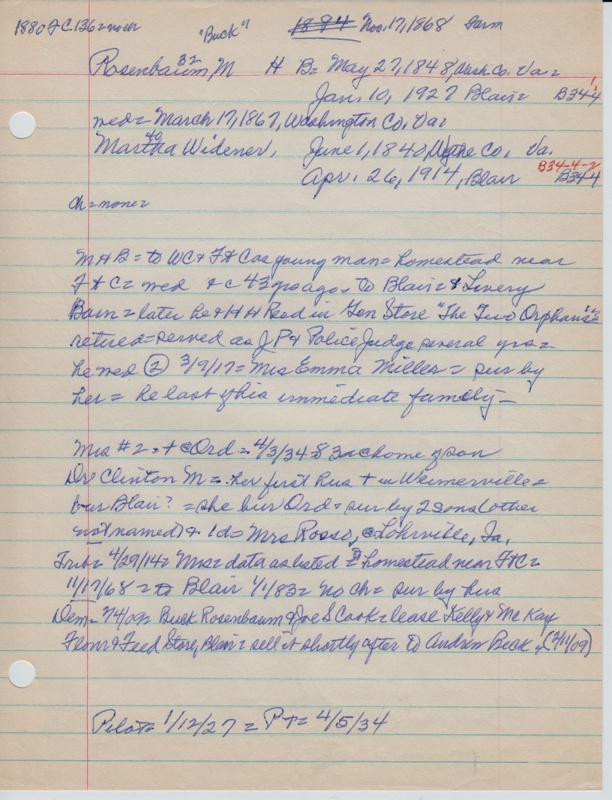 1880 F C 136 = no cr
"Buck" 1884 Nov. 17, 1868 Farm
32
Rosenbaum, M H B = May 27, 1848, Wash Co. Va =
Jan. 10, 1927 Blair = B34-4
med = March 17, 1867, Washington Co, Va =
40
Martha Widener, June 1, 1840, Wythe Co. Va.
B34-4-2
Apr. 26, 1914, Blair B34-4
ch = none =
M & B = to WC & Ft C as young man = homestead near
Ft C = med & c 43 yrs ago, to Blair = & Livery
Barn = later he & H H Reed in Gen Store "The Two Orphans" =
retired = served as J P & Police Judge several yrs =
he med (2) 3/9/17 = Mrs Emma Miller = sur by
her = he last of his immediate family —
Mrs #2 = + @ Ord = 4/3/34 83 @ home of son
Dr Clinton M = her first hus + in Weimerville =
bur Blair? = she bur Ord = sur by 2 sons (other
not named) & 1 d = Mrs Rosse, @ Lohrville, Ia.
Trib = 4/29/14 = Mrs = data as listed = homestead near Ft C =
11/17/68 = to Blair 1/1/83 = no ch = sur by hus
Dem = 7/4/02 = Buck Rosenbaum & Joe S Cook = lease Kelly & McKay
Flour & Feed Store, Blair = sell it shortly after to Andrew Beck = (2/11/09)
Pilot = 1/12/27 = P T = 4/5/34